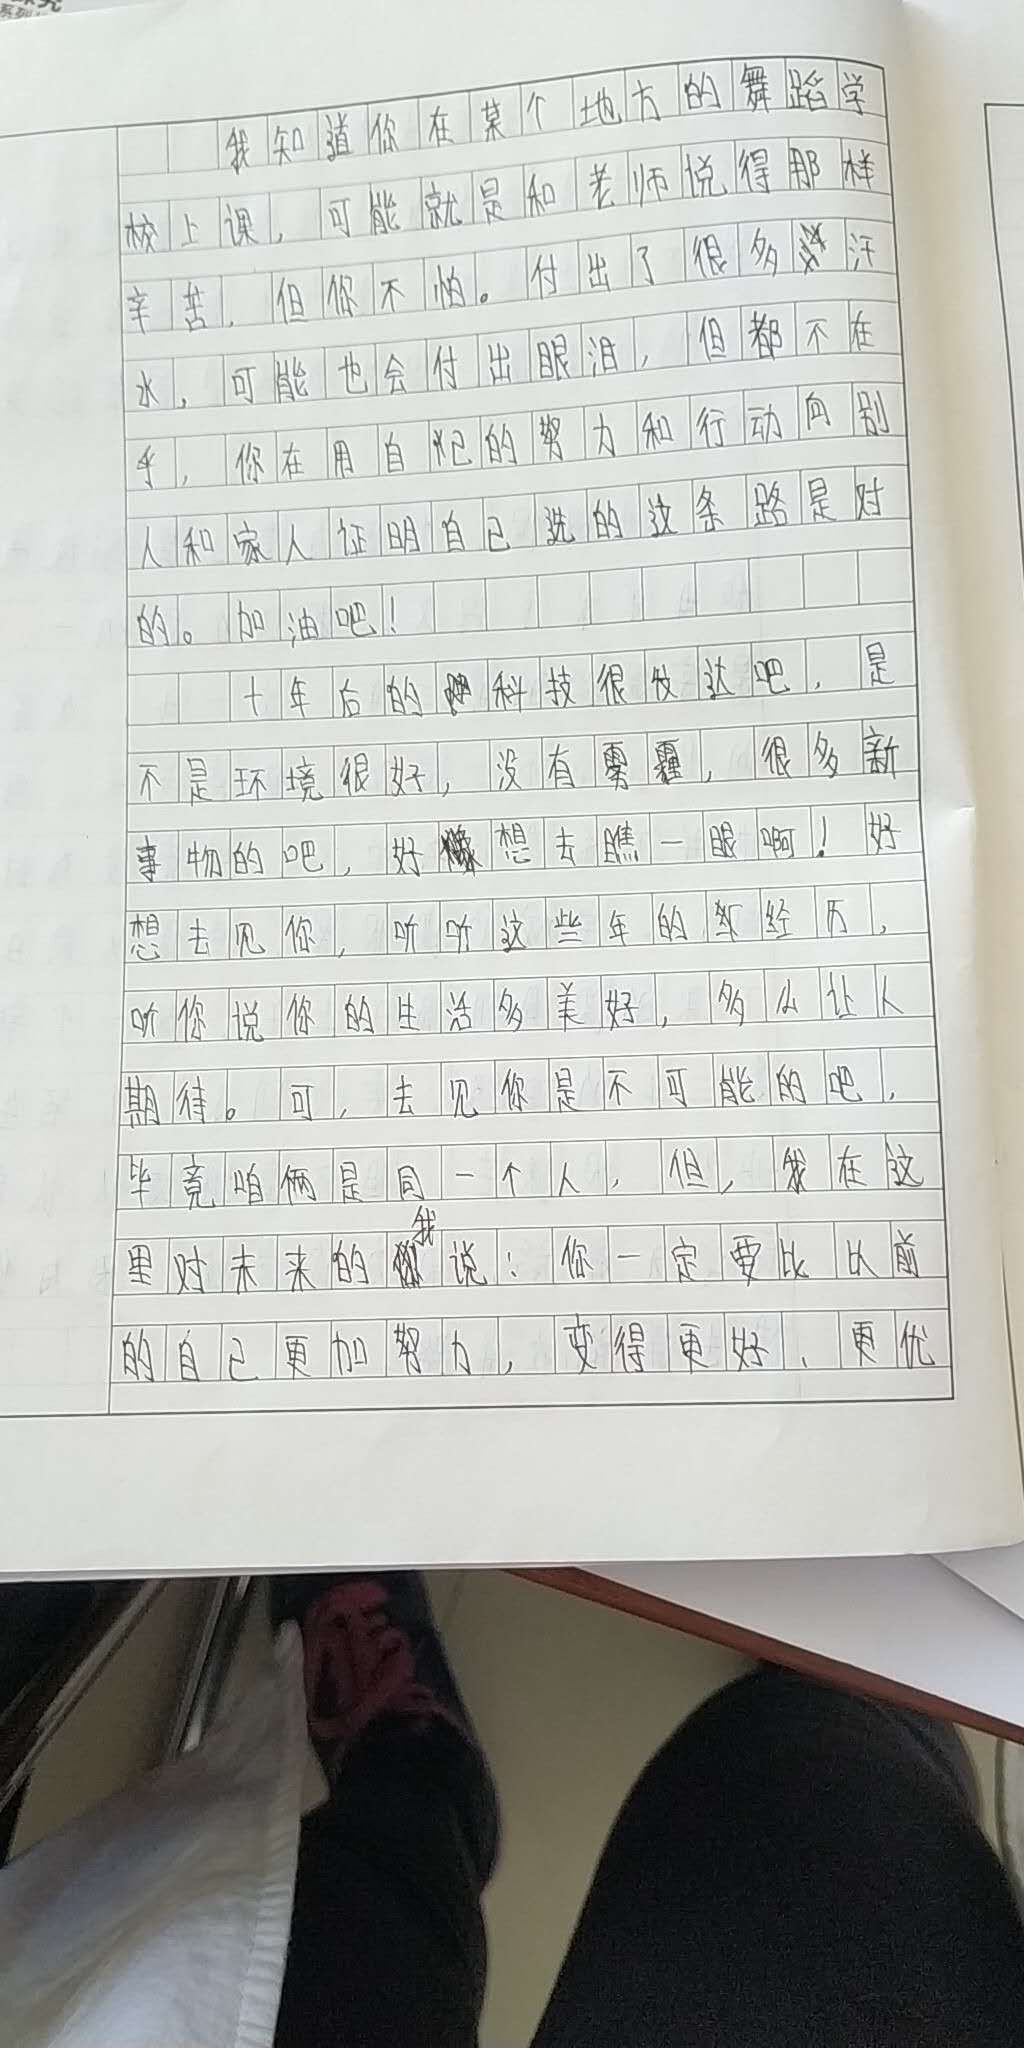 系列
我知道你在某个地方的舞蹈学
校上课，可能就是和老师说得那样
辛苦，但你不怕。付出了很多汗
水，可能也会付出眼泪，但都不在
乎，你在用自己的努力和行动向别
人和家人证明自己选的这条路是对
的。加油吧！
十年后的科技很发达吧，是
不是环境很好，没有雾霾，很多新
事物的吧，好想去瞧一眼啊！好
想去见你，听听这些年的经历，
听你说你的生活多美好，多么让人
期待。可，去见你是不可能的吧，
毕竟咱俩是同一个人，但，我在这
里对未来的我说：你一定要比以前
的自己更加努力，变得更好、更优